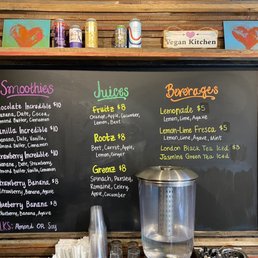 Vegan Kitchen
Smoothies
Chocolate Incredible $10
Banana, Date, Cocoa,
Almond Butter, Cinnamon
Vanilla Incredible $10
Banana, Date, Vanilla,
Almond Butter, Cinnamon
Strawberry Incredible $10
Banana, Date, Strawberry,
Almond Butter, Cinnamon
Strawberry Banana $8
Strawberry, Banana, Agave
Blueberry Banana $8
Blueberry, Banana, Agave
Almond or Soy
Juices
Fruitz $8
Orange, Apple, Cucumber,
Lemon, Beet
Rootz $8
Beet, Carrot, Apple,
Lemon, Ginger
Greenz $8
Spinach, Parsley,
Romaine, Celery,
Apple, Cucumber
Beverages
Lemonade $5
Lemon, Lime, Agave
Lemon-Lime Fresca $5
Lemon, Lime, Agave, Mint
London Black Tea Iced $3
Jasmine Green Tea Iced